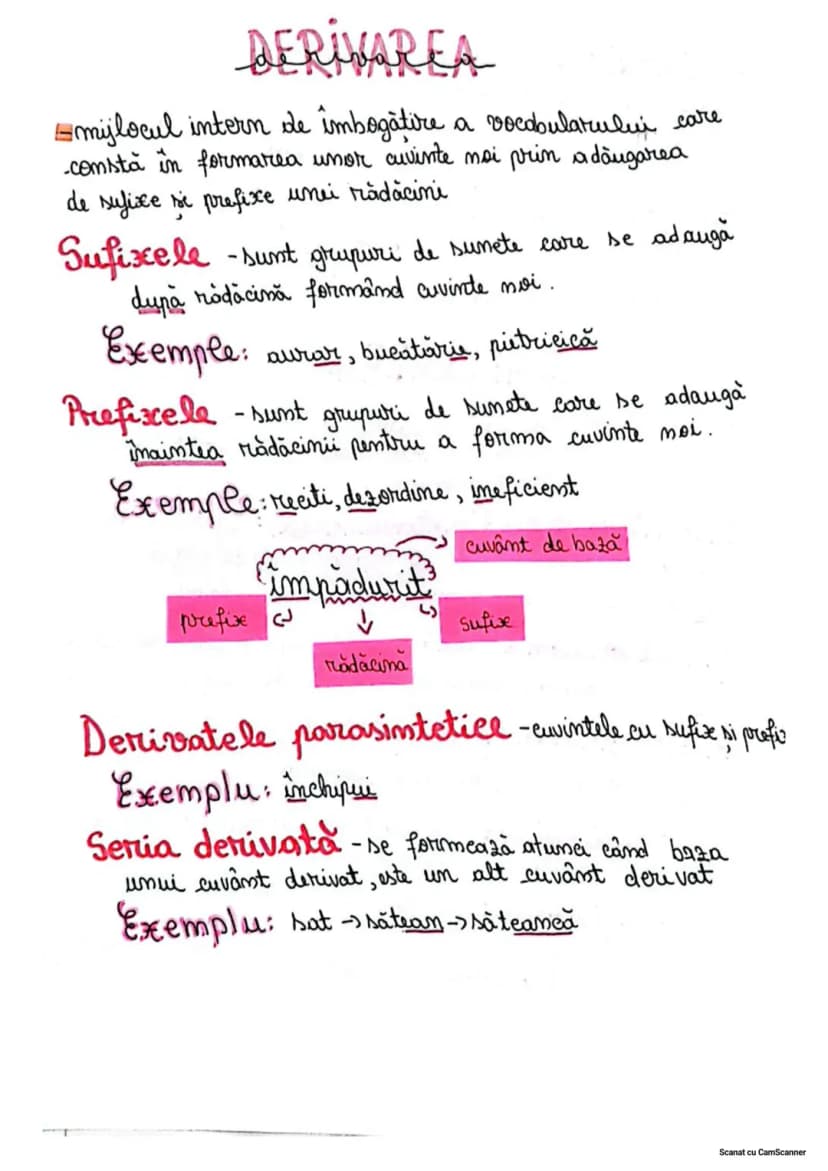 DERIVAREA
derivarea
-mijlocul intern de îmbogățire a vocabularului care
constă în formarea unor cuvinte noi prin adăugarea
de sufixe și prefixe unei rădăcini
Sufixele - sunt grupuri de sunete care se adaugă
după rădăcină formând cuvinte noi.
Exemple: aurar, bucătărie, pietricică
Prefixele - sunt grupuri de sunete care se adaugă
înaintea rădăcinii pentru a forma cuvinte noi.
Exemple: reciti, dezordine, ineficient
cuvânt de bază
împădurit
prefixe
sufixe
rădăcină
Derivatele parasintetice - cuvintele cu sufixe și prefix
Exemplu: închipui
Seria derivată - se formează atunci când baza
unui cuvânt derivat, este un alt cuvânt derivat
Exemplu: sat → sătean → săteancă
Scanat cu CamScanner